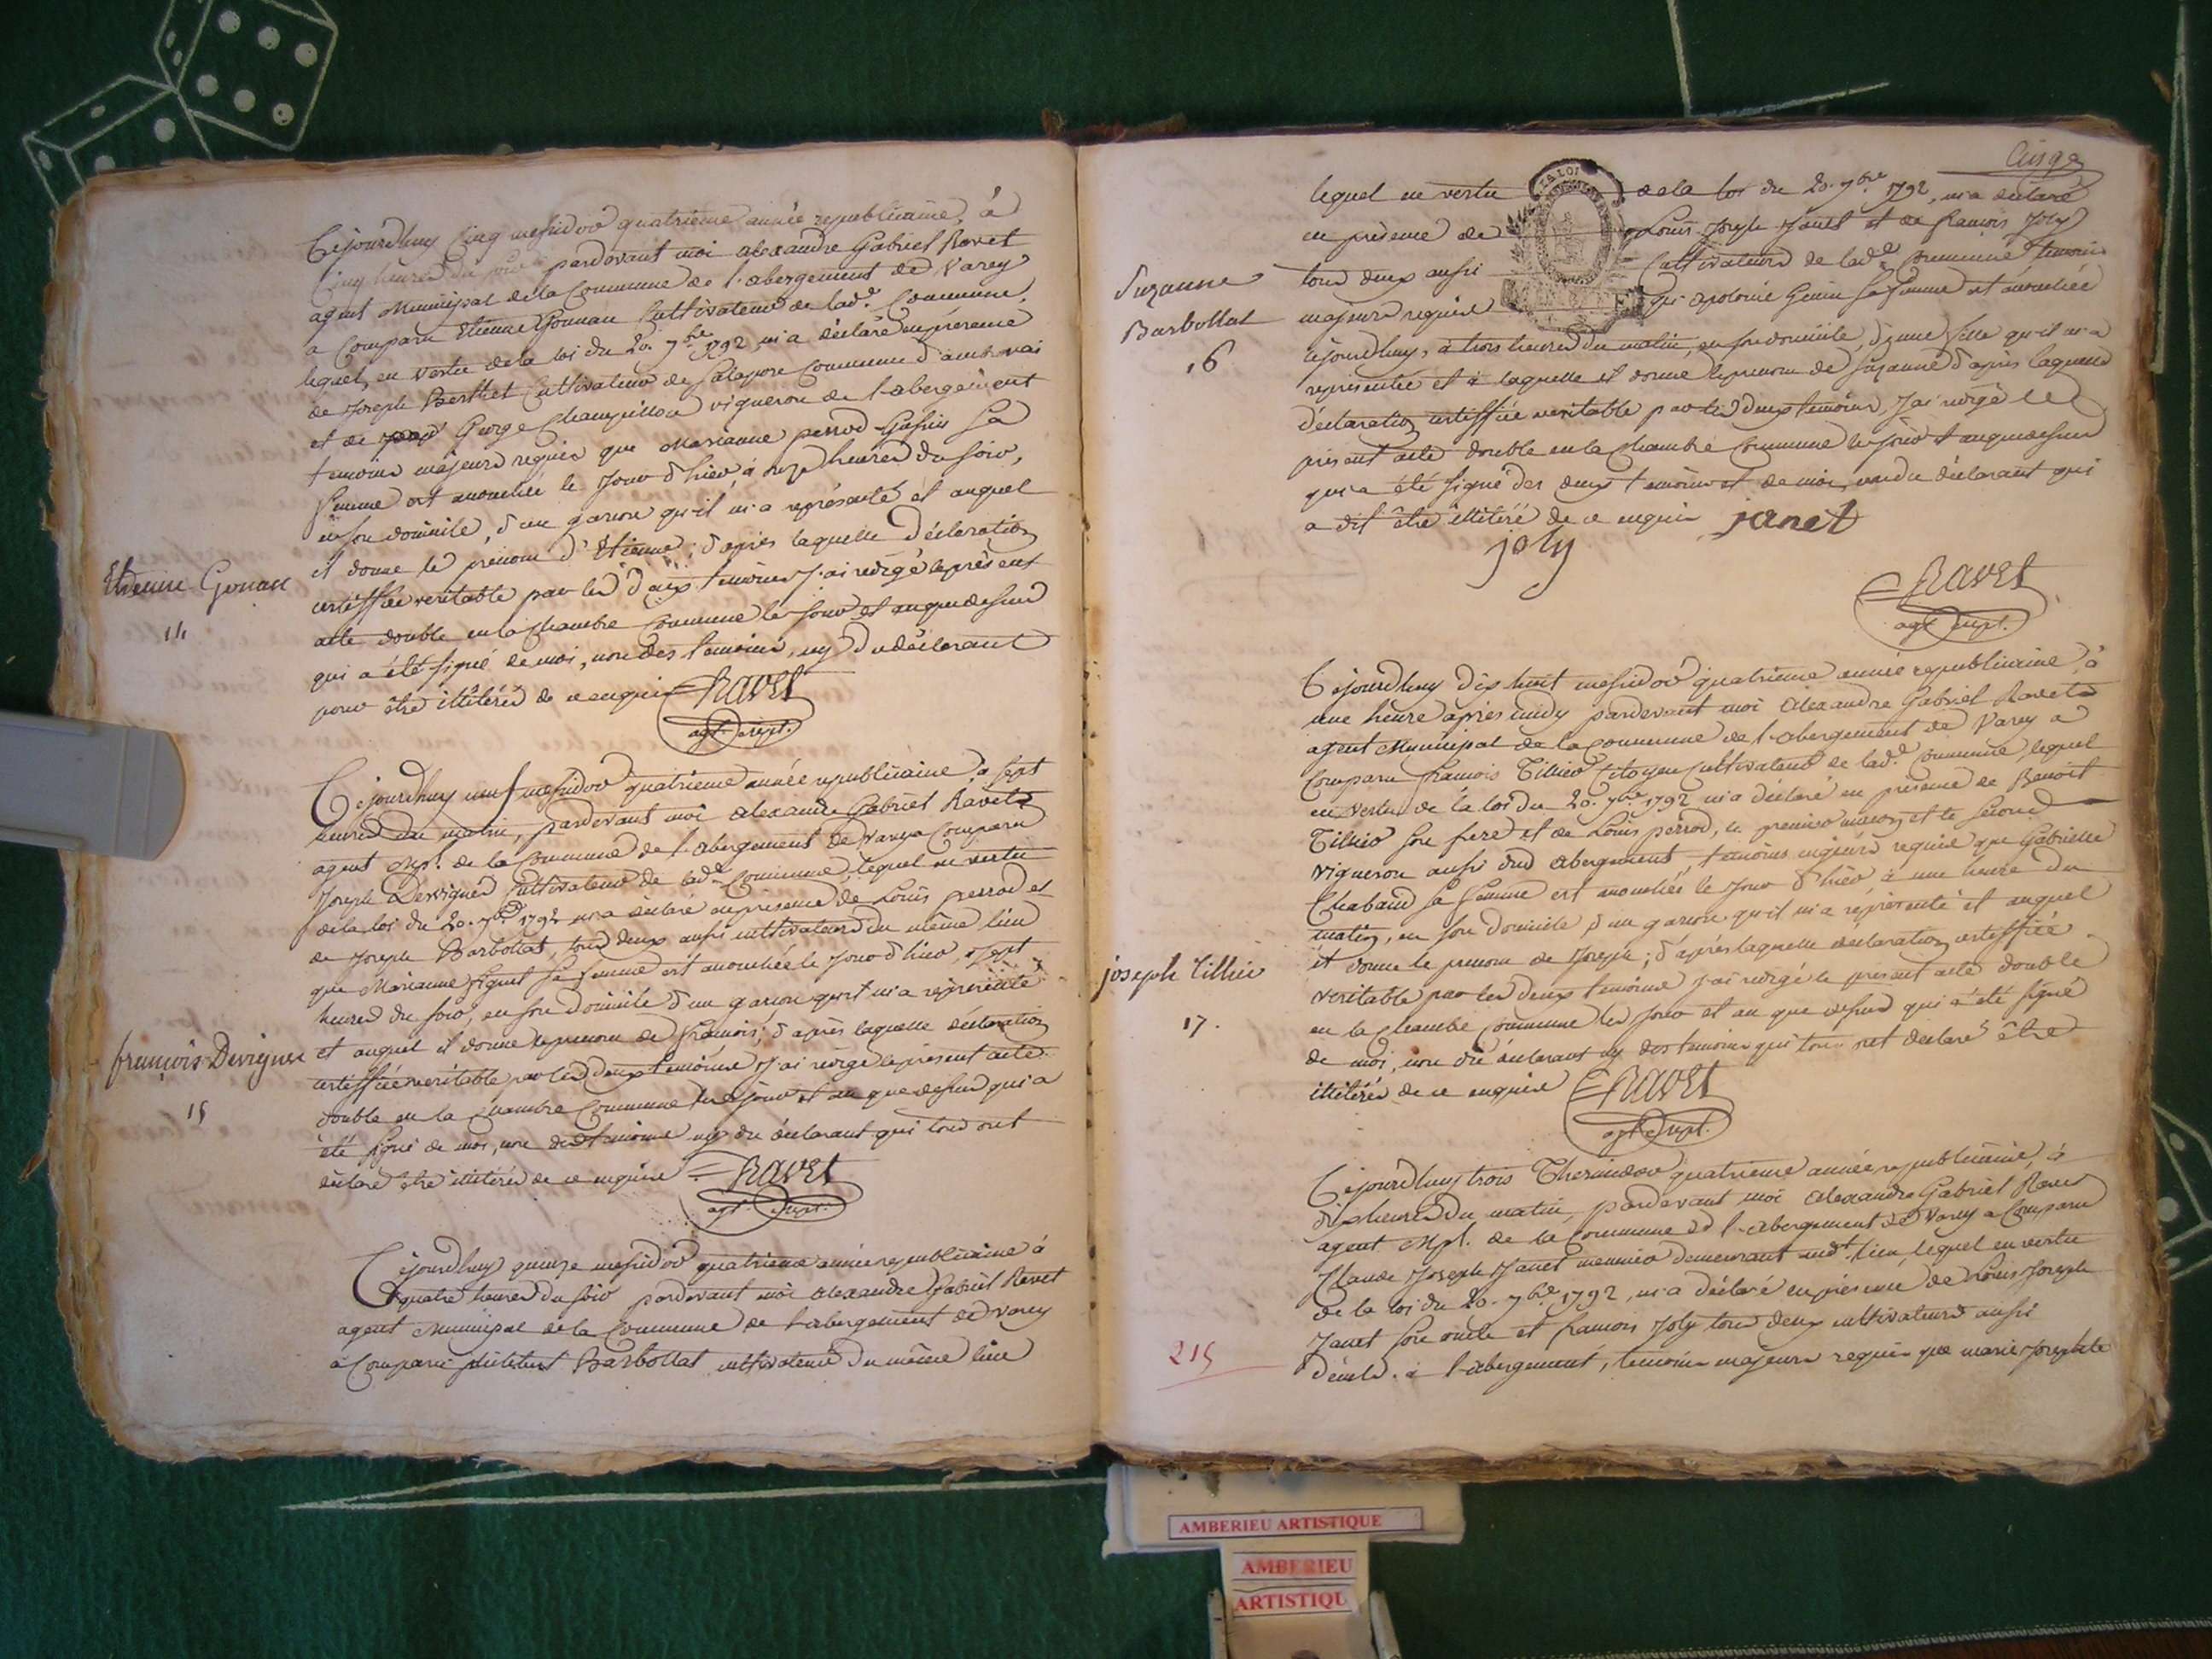 Cejourdhuy Cinq messidor quatrieme année republicaine, à
Cinq heures du soir pardevant moi alexandre Gabriel Ravet
agent Municipal dela Commune de l'abergement de Varey
a Comparu Etienne Gonnan Cultivateur de lad.e Commune,
lequel, en vertu dela loi du 20. 7bre 1792, m'a déclaré en présence
de Joseph Berthet Cultivateur de Salapore Commune d'ambronai
et de George Champillou vigneron de l'abergement
temoins majeurs requis que Marianne perrod Gissin sa
femme est accouchée le jour d'hier, à onze heures du soir,
en son domicile, d'un garson qu'il m'a représenté et auquel
il donne le prenom d'Etienne; d'après laquelle déclaration
certiffiée veritable par les deux temoins J'ai redigé le présent
acte double en la Chambre Commune les jour et an que dessus
qui a été signé de moi, non des temoins, ny du déclarant
pour être illitérés de ce enquis Ravet
agt. Mpl.
Etienne Gonan
14
Cejourdhuy neuf messidor quatrieme année republicaine, à sept
heures du matin, pardevant moi alexandre Gabriel Ravet
agent Mpl. de la Commune de l'abergement de Varey a Comparu
Joseph Devignes Cultivateur de lad.e Commune, lequel en vertu
dela loi du 20. 7bre 1792 m'a déclaré en présence de Louis perrod et
de Joseph Barbollat, tous deux aussi cultivateurs du même lieu
que Marianne figuet sa femme est accouchée le jour d'hier, à sept
heures du soir, en son domicile d'un garson qu'il m'a représenté
et auquel il donne le prenom de François; d'après laquelle déclaration
certiffiée veritable par les deux temoins J'ai redigé le présent acte
double en la Chambre Commune les jour et an que dessus qui a
été signé de moi, non des temoins ny du déclarant qui tous ont
déclaré être illitérés de ce enquis Ravet
agt. Mpl.
françois Devignes
15
Cejourdhuy quinze messidor quatrieme année republicaine à
quatre heures du soir pardevant moi alexandre Gabriel Ravet
agent Municipal dela Commune de l'abergement de Varey
a Comparu Barbollat cultivateur du même lieu
Cinq
lequel en vertu dela loi du 20. 7bre 1792, m'a déclaré
en présence de Louis Joseph Janet et de François Joly
tous deux aussi Cultivateurs de lad.e Commune temoins
majeurs requis que apolonie Genin sa femme est accouchée
cejourdhuy, à trois heures du matin, en son domicile, d'une fille qu'il m'a
représentée et à laquelle il donne le prenom de Suzanne d'après laquelle
déclaration certiffiée veritable par les deux temoins, J'ai redigé le
présent acte double en la Chambre Commune les jour et an que dessus
qui a été signé des deux temoins et de moi, non du déclarant qui
a dit être illitéré de ce enquis janet
joly
Ravet
agt Mpl.
Suzanne
Barbollat
16
Cejourdhuy dix huit messidor quatrieme année republicaine, à
une heure après midy pardevant moi Alexandre Gabriel Ravet
agent Municipal de la Commune de l'abergement de Varey a
Comparu François Tillier Citoyen Cultivateur de lad.e Commune, lequel
en vertu de la loi du 20. 7bre 1792 m'a déclaré en présence de Benoit
Tillier son frere et de Louis perrod, le premier maçon et le second
vigneron aussi dud abergement, temoins majeurs requis que Gabrielle
Chabaud sa femme est accouchée le jour d'hier à une heure du
matin, en son domicile d'un garson qu'il m'a représenté et auquel
il donne le prenom de Joseph; d'après laquelle déclaration certiffiée
veritable par les deux temoins J'ai redigé le présent acte double
en la Chambre Commune les jour et an que dessus qui a été signé
de moi, non du déclarant ny des temoins qui tous ont déclaré être
illitérés de ce enquis Ravet
agt Mpl.
joseph Tillier
17.
Cejourdhuy trois Thermidor quatrieme année republicaine, à
dix heures du matin, pardevant moi Alexandre Gabriel Ravet
agent Mpl. de la Commune de l'abergement de Varey a Comparu
Claude Joseph Janet meunier demeurant aud.t lieu, lequel en vertu
de la loi du 20. 7bre 1792, m'a déclaré en présence de Louis Joseph
Janet son oncle et François Joly tous deux cultivateurs aussi
à l'abergement, temoins majeurs requis que marie Josephte
215
LA LOI
AMBERIEU ARTISTIQUE
AMBERIEU
ARTISTIQU